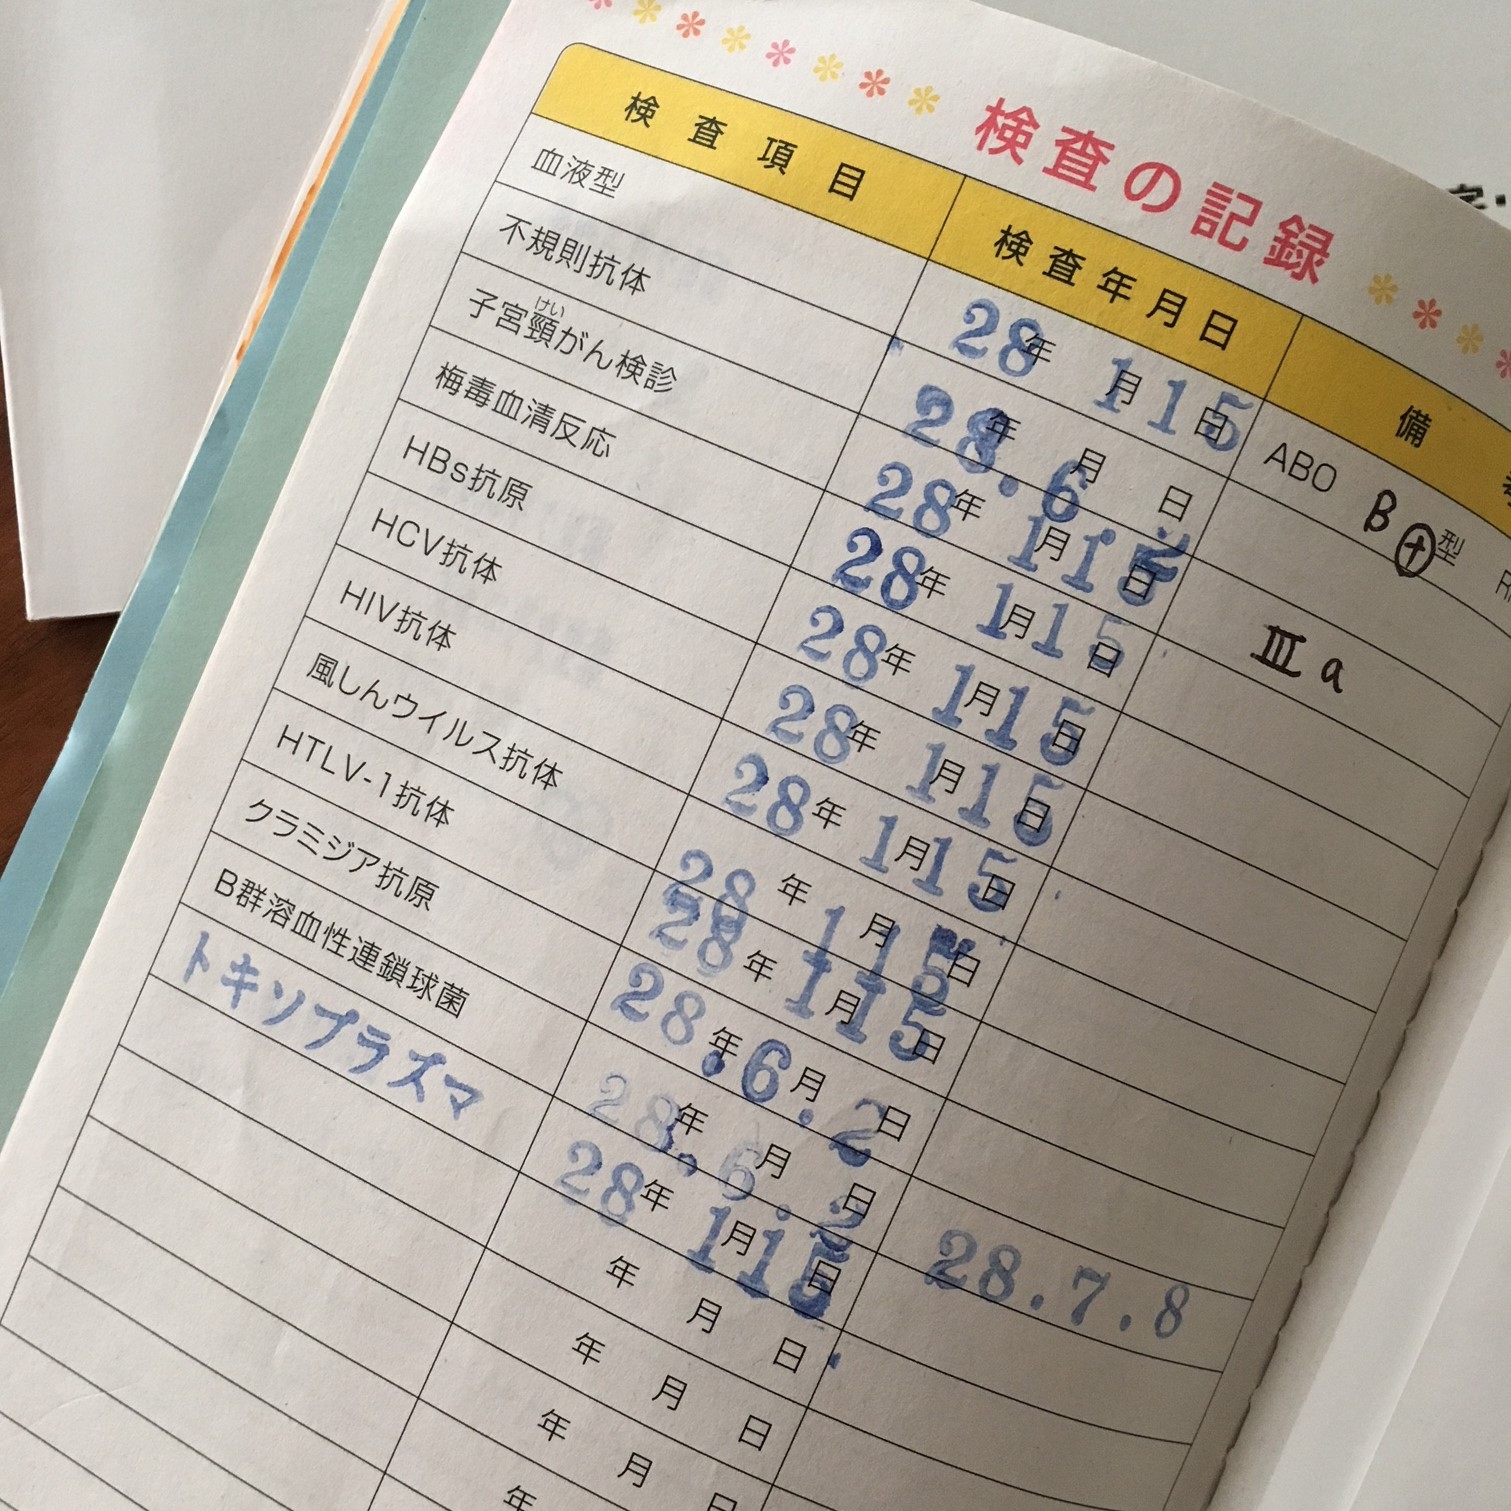 検査の記録
検査項目 検査年月日 備
血液型 28年1月15日 ABO B⊕型
不規則抗体 28年.6月.2日
子宮頸がん検診 28年1月15日 Ⅲa
けい
梅毒血清反応 28年1月15日
HBs抗原 28年1月15日
HCV抗体 28年1月15日
HIV抗体 28年1月15日
風しんウイルス抗体 28年1月15日
HTLV-1抗体 28年1月15日
クラミジア抗原 28年.6月.2日
B群溶血性連鎖球菌 28年.6月.2日 28.7.8
トキソプラズマ 28年1月15日
年 月 日
年 月 日
年 月 日
年